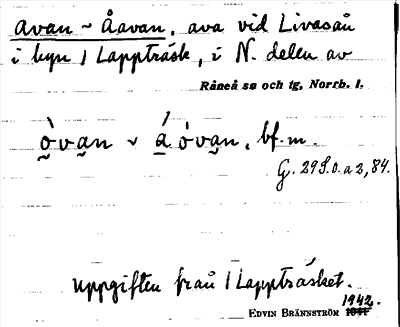 avan ~ Åavan, ava vid Livasåu
i byn / Lappträsk, i N. delen av
Råneå sn och tg, Norrb. l.
ò̰va̰n ~ á̰ ó̰va̰n, bf. m.
G. 29 S.o. a 2, 84.
uppgiften från / Lappträsket.
1942.
EDVIN BRÄNNSTRÖM 1941